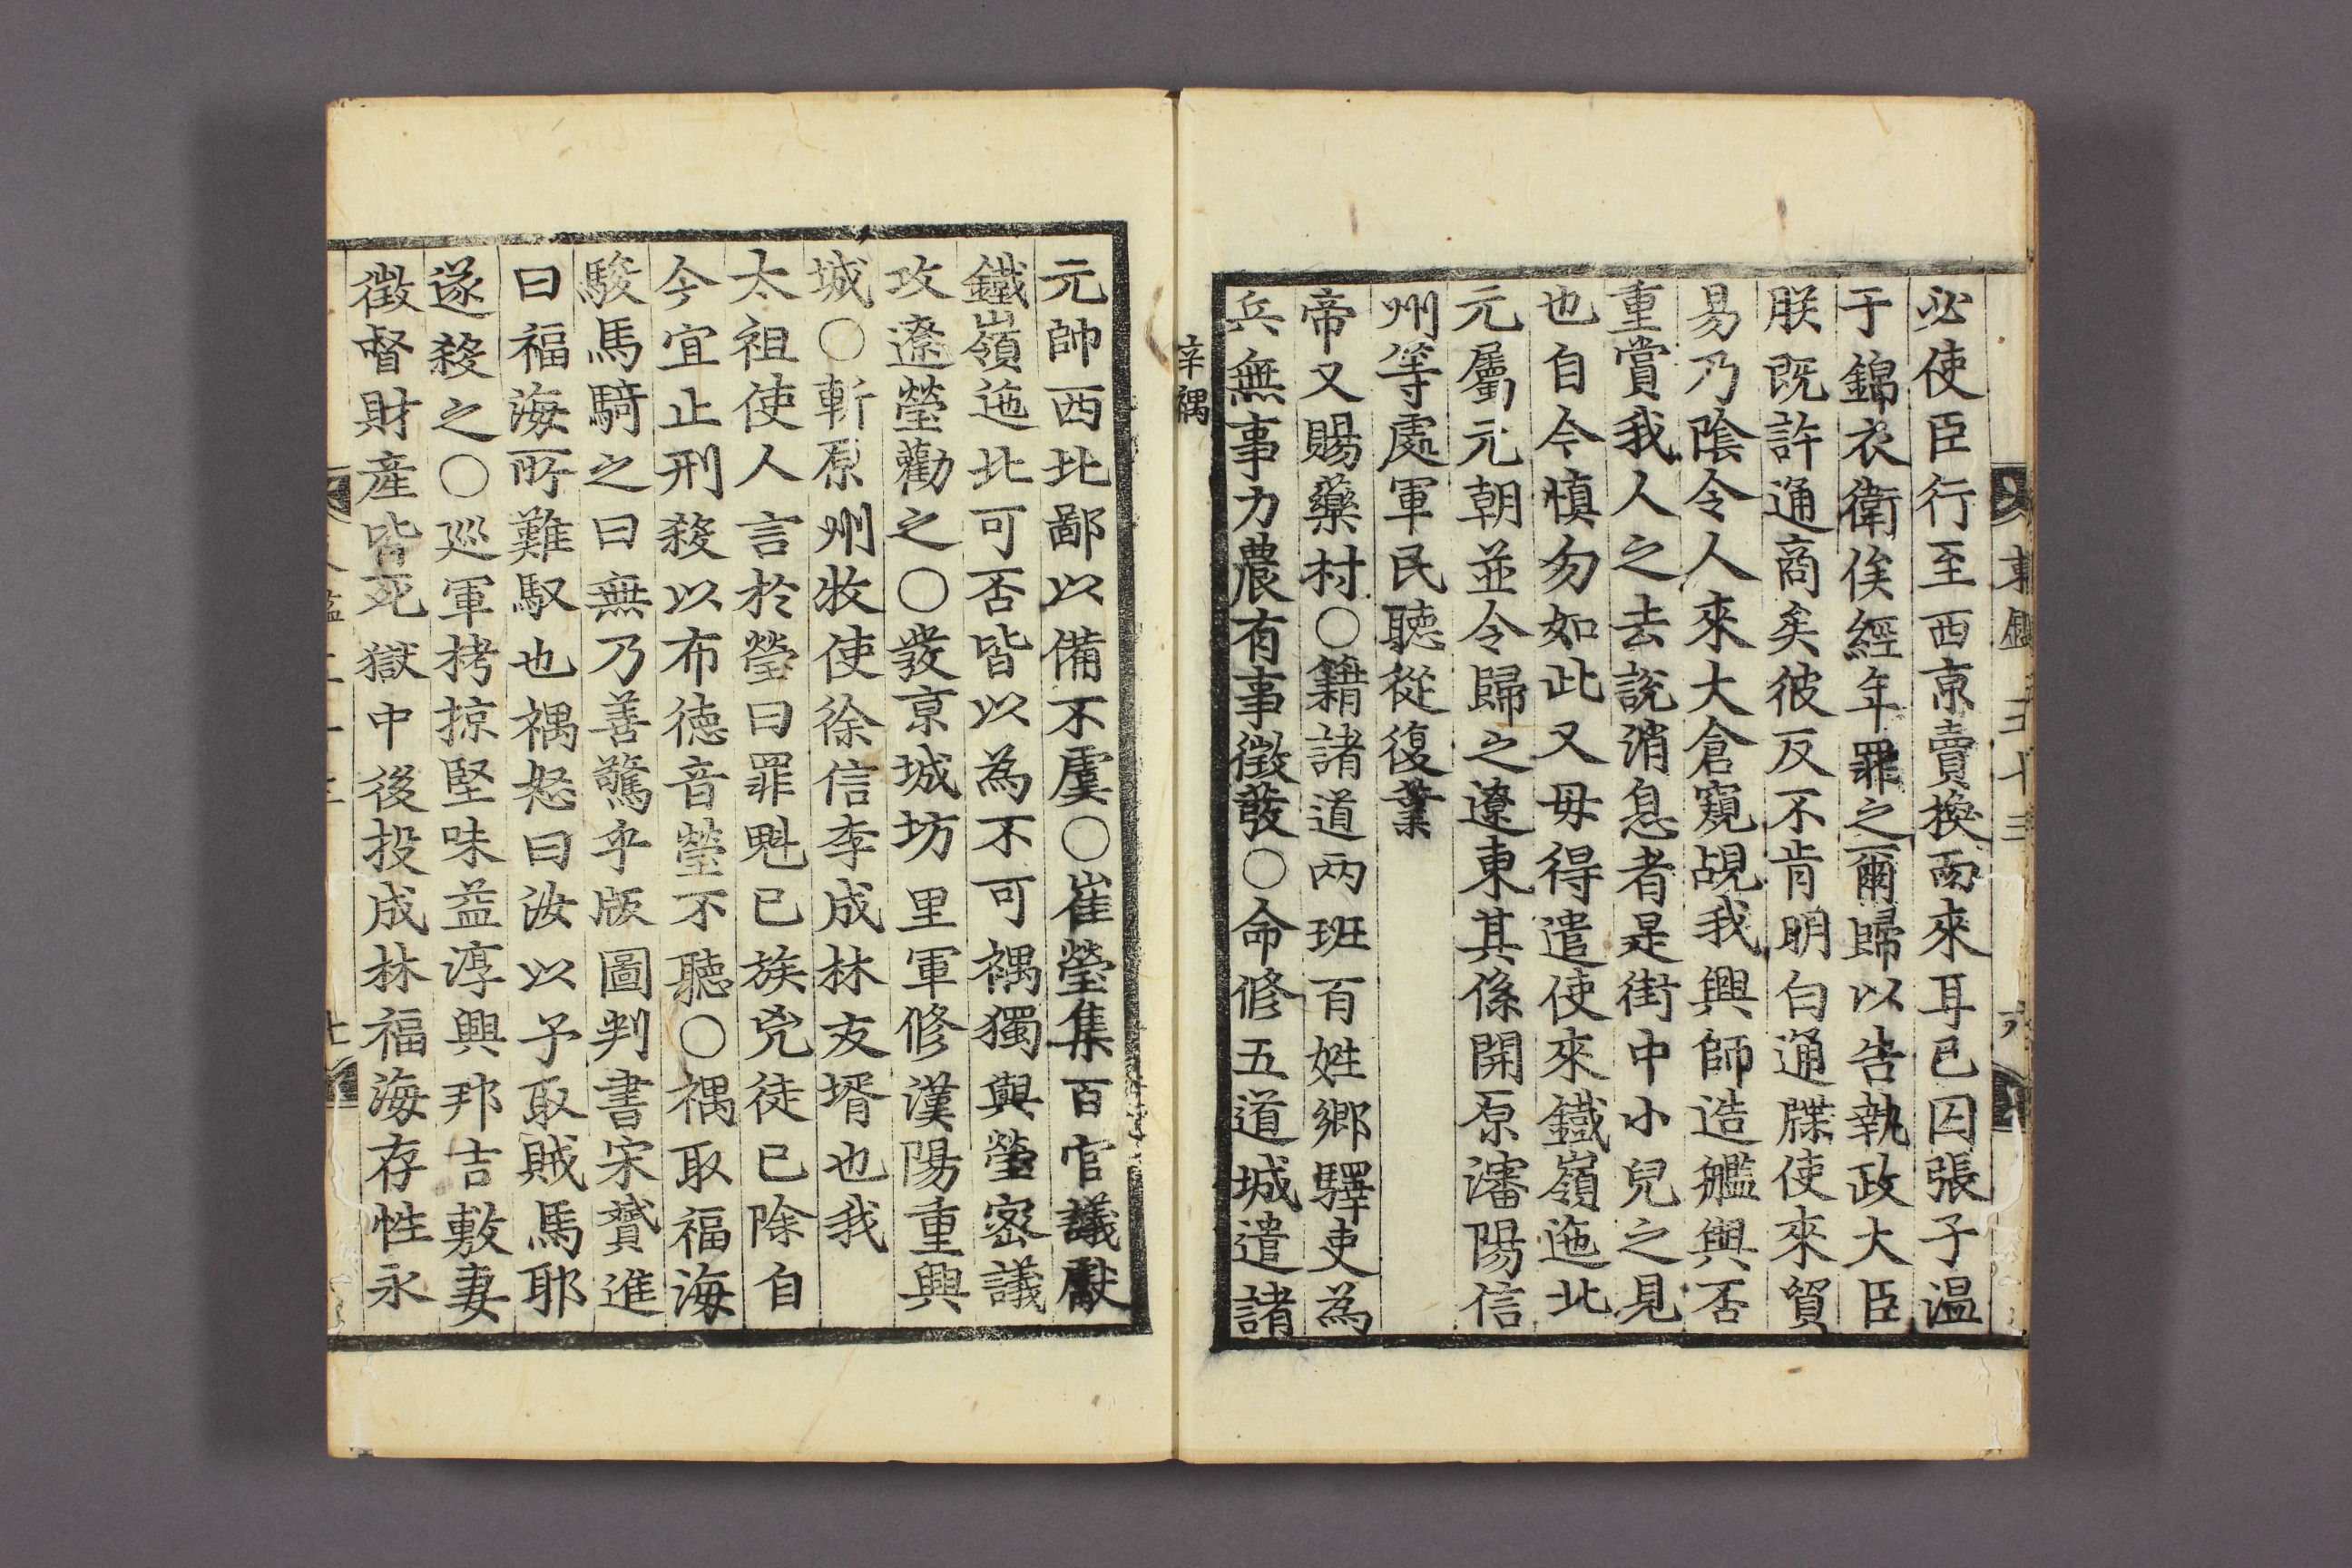 必使臣行至西京賣換而來耳已囚張子温
于錦衣衛俟經年罪之爾歸以告執政大臣
朕既許通商矣彼反不肯明白通牒使來貿
易乃陰令人來大倉窺覘我興師造艦與否
重賞我人之去説消息者是街中小兒之見
也自今慎勿如此又毋得遣使來鐵嶺迤北
元屬元朝並令歸之遼東其係開原瀋陽信
州等處軍民聽從復業
帝又賜藥材○籍諸道両班百姓鄉驛吏為
兵無事力農有事徵發○命修五道城遣諸
辛禑
元帥西北鄙以備不虞○崔瑩集百官議獻
鐵嶺迤北可否皆以為不可禑獨與瑩密議
攻遼瑩勸之○發京城坊里軍修漢陽重興
城○斬原州牧使徐信李成林友壻也我
太祖使人言於瑩曰罪魁已族兇徒已除自
今宜止刑殺以布德音瑩不聽○禑取福海
駿馬騎之曰無乃善驚乎版圖判書宋贇進
曰福海所難馭也禑怒曰汝以予取賊馬耶
遂殺之○巡軍拷掠堅味益淳興邦吉敷妻
徵督財産皆死獄中後投成林福海存性永